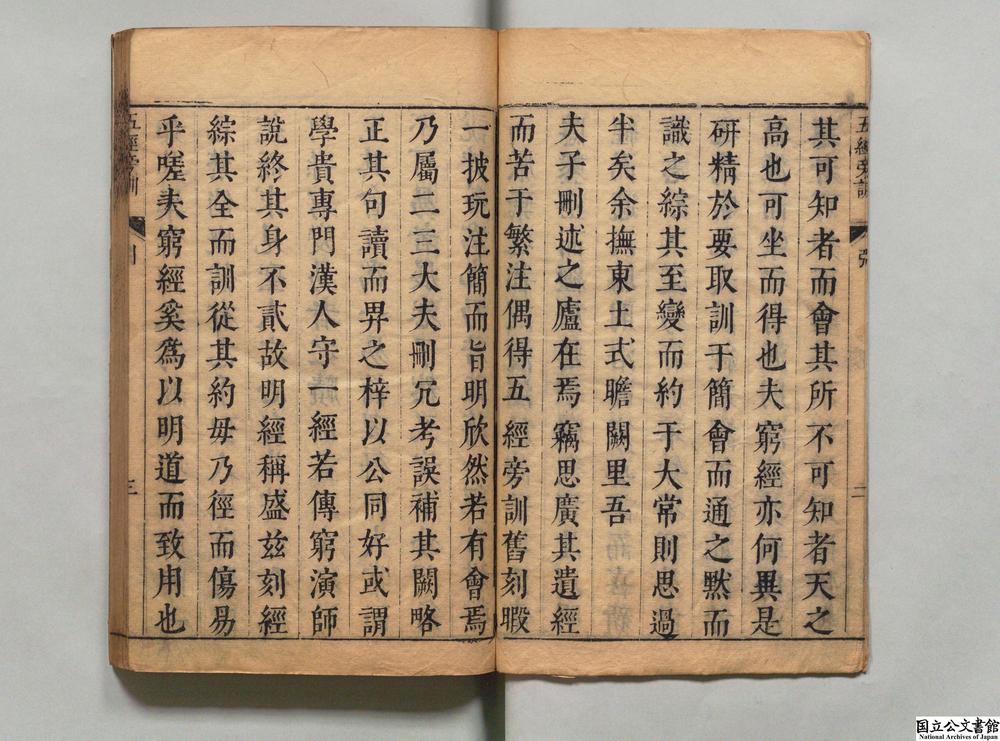 其可知者而會其所不可知者天之
高也可坐而得也夫窮經亦何異是
硏精於要取訓于簡會而通之默而
識之綜其至變而約于大常則思過
半矣余撫東土式瞻闕里吾
夫子刪述之廬在焉竊思廣其遺經
而苦于繁注偶得五經旁訓舊刻暇
一披玩注簡而旨明欣然若有會焉
乃屬二三大夫刪冗考誤補其闕略
正其句讀而畀之梓以公同好或謂
學貴專門漢人守一經若傳窮演師
說終其身不貳故明經稱盛玆刻經
綜其全而訓從其約毋乃徑而傷易
乎嗟夫窮經奚爲以明道而致用也
五經旁訓
二
五經旁訓
三
国立公文書館
National Archives of Japan